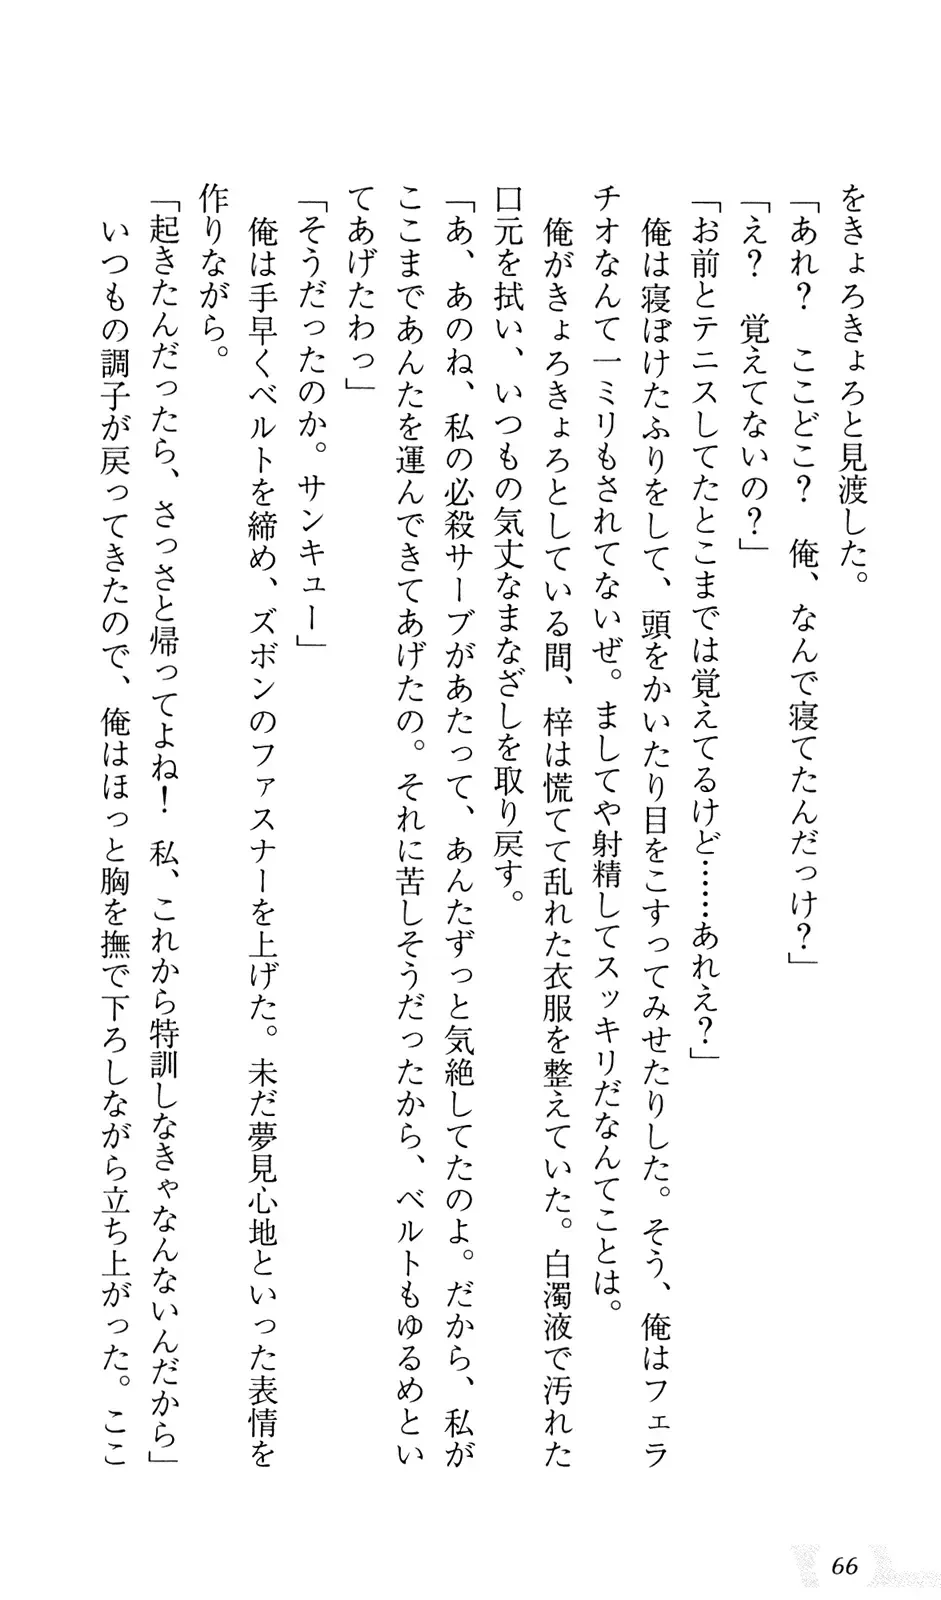 をきょろきょろと見渡した。
「あれ？　ここどこ？　俺、なんで寝てたんだっけ？」
「え？　覚えてないの？」
「お前とテニスしてたとこまでは覚えてるけど……あれぇ？」
　俺は寝ぼけたふりをして、頭をかいたり目をこすってみせたりした。そう、俺はフェラ
チオなんて一ミリもされてないぜ。ましてや射精してスッキリだなんてことは。
　俺がきょろきょろとしている間、梓は慌てて乱れた衣服を整えていた。白濁液で汚れた
口元を拭い、いつもの気丈なまなざしを取り戻す。
「あ、あのね、私の必殺サーブがあたって、あんたずっと気絶してたのよ。だから、私が
ここまであんたを運んできてあげたの。それに苦しそうだったから、ベルトもゆるめとい
てあげたわっ」
「そうだったのか。サンキュー」
　俺は手早くベルトを締め、ズボンのファスナーを上げた。未だ夢見心地といった表情を
作りながら。
「起きたんだったら、さっさと帰ってよね！　私、これから特訓しなきゃなんないんだから」
　いつもの調子が戻ってきたので、俺はほっと胸を撫で下ろしながら立ち上がった。ここ
66